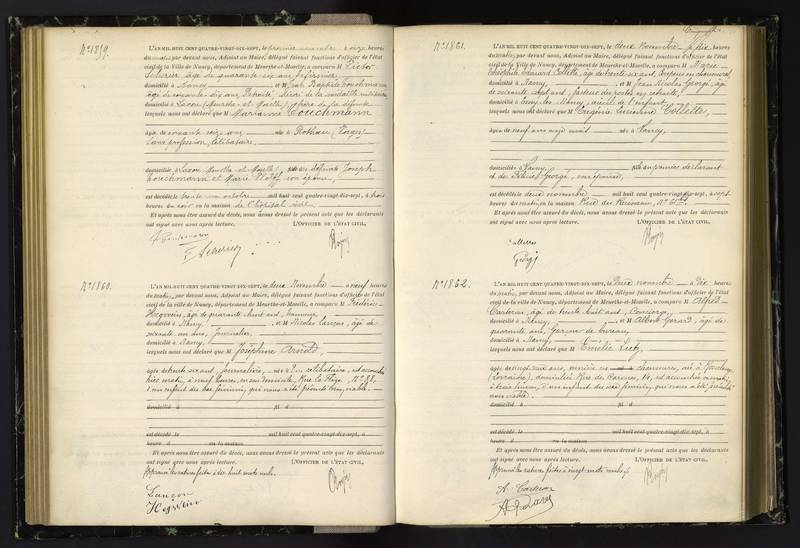 N° 1859.
L'AN MIL HUIT CENT QUATRE-VINGT-DIX-SEPT, le premier novembre à onze heures
du matin par devant nous, Adjoint au Maire, délégué faisant fonctions d'officier de l'état
civil de la Ville de Nancy, département de Meurthe-et-Moselle, a comparu M Victor
âgé de quarante six ans, infirmier
domicilié à Nancy et M Jean Baptiste Couchmann
âgé de soixante dix ans, Retraité, décoré de la médaille militaire
domicilié à Laxou (Meurthe et Moselle), frère de la défunte
lesquels nous ont déclaré que M Marianne Couchmann
âgée de soixante seize ans née à Rothau (Vosges)
sans profession, célibataire
domiciliée à Laxou Meurthe et Moselle, fille des défunts Joseph
Couchmann et Marie Wolff son épouse,
est décédée le trente un octobre mil huit cent quatre-vingt-dix-sept, à trois
heures du soir en la maison de l'hôpital civil
Et après nous être assuré du décès, nous avons dressé le présent acte que les déclarants
ont signé avec nous après lecture. L'OFFICIER DE L'ÉTAT CIVIL,
N° 1860.
L'AN MIL HUIT CENT QUATRE-VINGT-DIX-SEPT, le deux Novembre à neuf heures
du matin, par devant nous, Adjoint au Maire, délégué faisant fonctions d'officier de l'état
civil de la ville de Nancy, département de Meurthe-et-Moselle, a comparu M Frédéric
Hegwein, âgé de quarante huit ans,
domicilié à Nancy, et M Nicolas Lançon, âgé de
soixante un ans, Journalier
domicilié à Nancy,
lesquels nous ont déclaré que M Joséphine Arnold,
âgée de trente six ans, journalière, née à célibataire, est accouchée
hier matin, à neuf heures, en son domicile, Rue N° 38,
d'un enfant du sexe féminin, qui nous a été présenté sans vie.
domicilié à fil d
est décédé le mil huit cent quatre-vingt-dix-sept, à
heure d en la maison
Et après nous être assuré du décès, nous avons dressé le présent acte que les déclarants
ont signé avec nous après lecture. L'OFFICIER DE L'ÉTAT CIVIL,
Approuvé les ratures faites à dix huit mots nuls.
Lançon
Hegwein
N° 1861.
L'AN MIL HUIT CENT QUATRE-VINGT-DIX-SEPT, le deux Novembre à dix heures
du matin, par devant nous, Adjoint au Maire, délégué faisant fonctions d'officier de l'état
civil de la ville de Nancy, département de Meurthe-et-Moselle, a comparu M Marie
Edouard Collette, âgé de trente six ans, Coupeur en chaussures
domicilié à Nancy, et M Jean Nicolas Georgé, âgé
de soixante sept ans, facteur des postes en retraite,
domicilié à Essey-lès-Nancy, aïeul de l'enfant,
lesquels nous ont déclaré que M Eugénie Collette,
âgée de neuf ans née à Nancy
domiciliée à Nancy, fille du premier déclarant
et de Georgé, son épouse,
est décédée le deux novembre mil huit cent quatre-vingt-dix-sept, à sept
heures du matin, en la maison Rue du Ruisseau, N°
Et après nous être assuré du décès, nous avons dressé le présent acte que les déclarants
ont signé avec nous après lecture. L'OFFICIER DE L'ÉTAT CIVIL,
Collette
Georgé
N° 1862.
L'AN MIL HUIT CENT QUATRE-VINGT-DIX-SEPT, le Deux novembre à dix heures
du matin, par devant nous, Adjoint au Maire, délégué faisant fonctions d'officier de l'état
civil de la ville de Nancy, département de Meurthe-et-Moselle, a comparu M Alfred
Carteron, âgé de trente huit ans, Concierge,
domicilié à Nancy, et M Albert Gérard, âgé de
quarante ans, Garçon de bureau,
domicilié à Nancy,
lesquels nous ont déclaré que M Emélie Lutz,
âgée de vingt deux ans, ouvrière en chaussures, née à
(Lorraine), domiciliée Rue de 14, est accouchée
à trois heures, d'un enfant du sexe féminin, qui nous a été présenté
sans vie.
domicilié à fil d
est décédé le mil huit cent quatre-vingt-dix-sept, à
heure d en la maison
Et après nous être assuré du décès, nous avons dressé le présent acte que les déclarants
ont signé avec nous après lecture. L'OFFICIER DE L'ÉTAT CIVIL,
Approuvé les ratures faites à vingt mots nuls.
A. Carteron